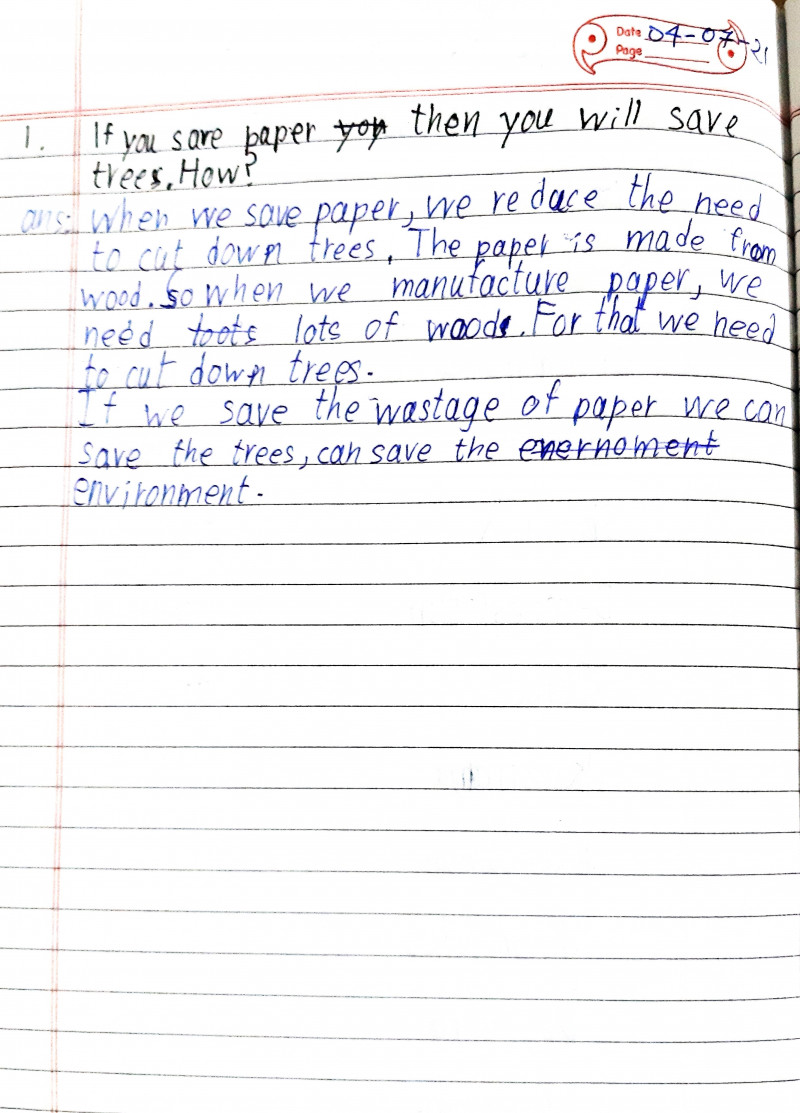 Date 04-07-21
Page
1. If you save paper you then you will save
trees. How?
ans: When we save paper, we reduce the need
to cut down trees. The paper is made from
wood. So when we manufacture paper, we
need toots lots of woods. For that we need
to cut down trees.
If we save the wastage of paper we can
save the trees, can save the enernoment
environment.